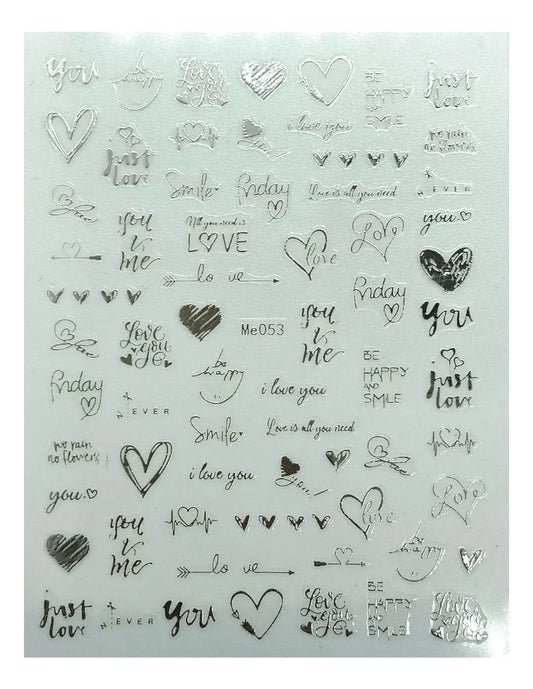 you
be happy
Love you
BE
HAPPY
AND
SMILE
just
love
i love you
no rain
no flowers
just
love
you!
Smile
friday
Love is all you need
EVER
Love
you
&
me
All you need is
LOVE
love
Love
you
lo ve
friday
you
Me053
you
&
me
Love
Love
you
be happy
BE
HAPPY
AND
SMILE
just
love
friday
EVER
i love you
Smile
Love is all you need
no rain
no flowers
Love
i love you
you!
you
love
Love
you
&
me
be happy
lo ve
just
love
EVER
you
Love
you
BE
HAPPY
AND
SMILE
Love
you